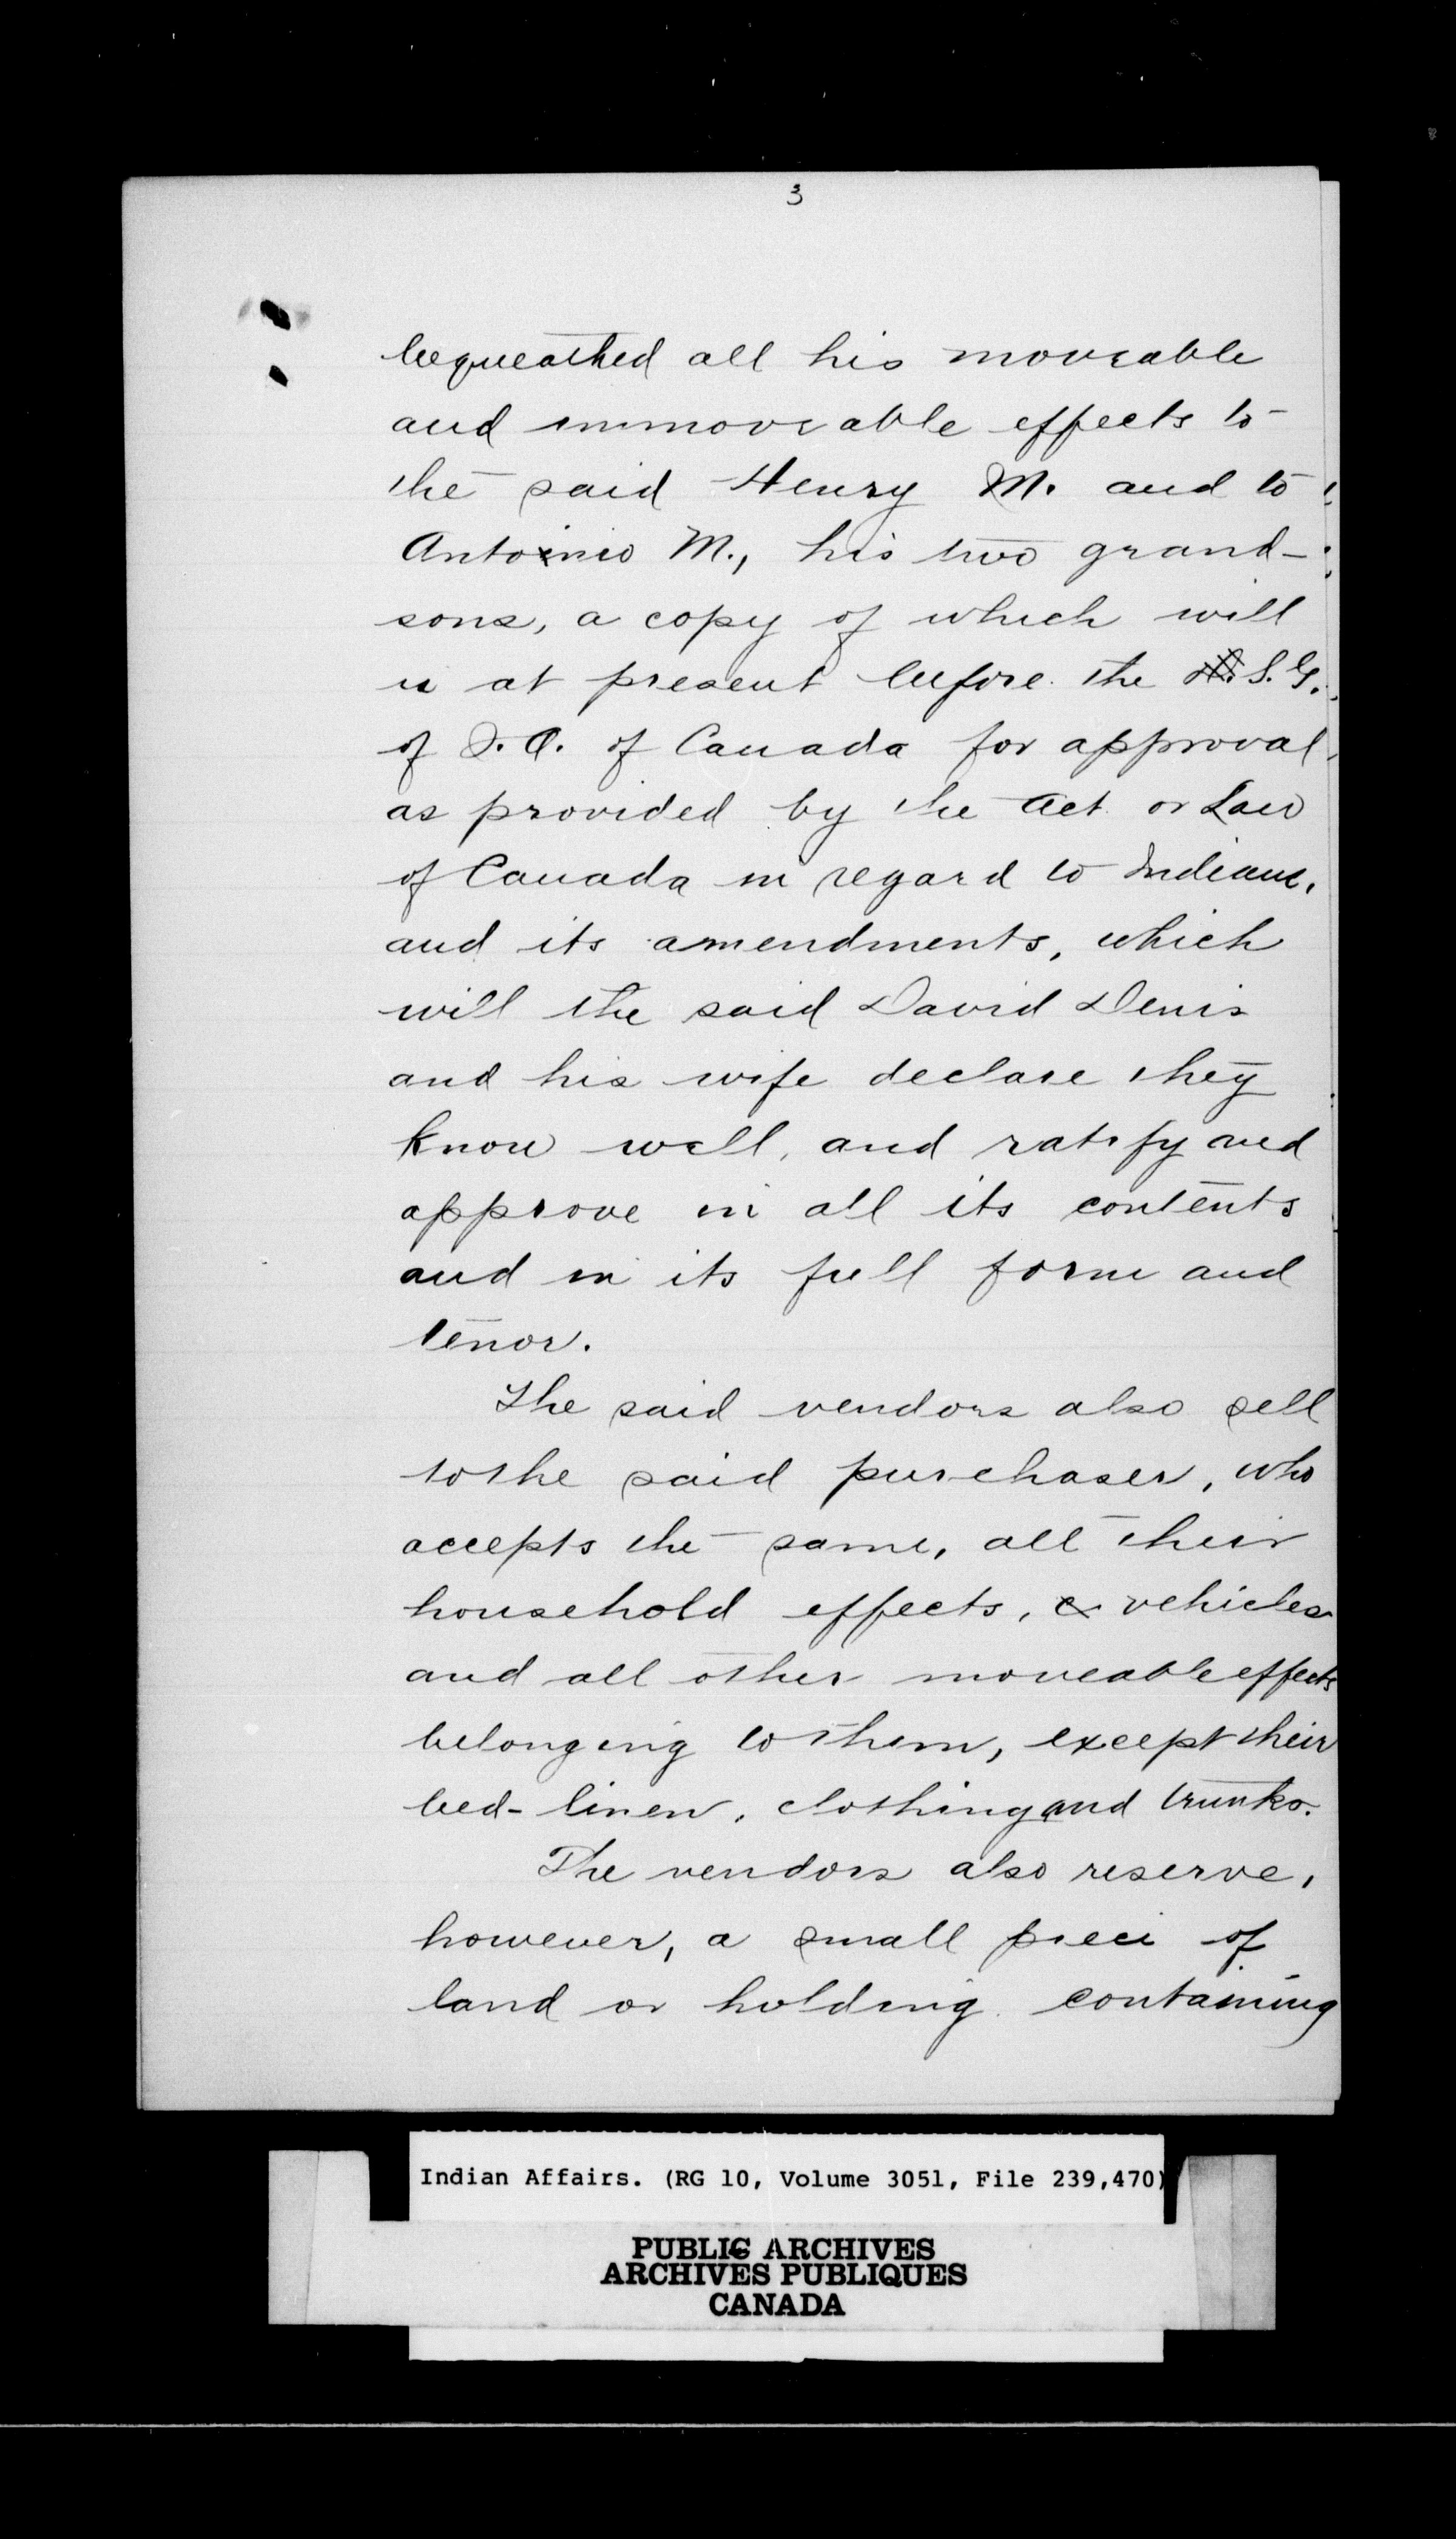 3
bequeathed all his moveable
and immoveable effects to
the said Henry M. and to
Antonio M., his two grand-
sons, a copy of which will
is at present before the S. G.
of I. A. of Canada for approval,
as provided by the Act or Law
of Canada in regard to Indians,
and its amendments, which
will the said David Denis
and his wife declare they
know well, and ratify and
approve in all its contents
and in its full form and
tenor.
The said vendors also sell
to the said purchaser, who
accepts the same, all their
household effects, vehicles
and all other moveable effects
belonging to them, except their
bed-linen, clothing and trunks.
The vendors also reserve,
however, a small piece of
land or holding containing
Indian Affairs. (RG 10, Volume 3051, File 239,470)
PUBLIC ARCHIVES
ARCHIVES PUBLIQUES
CANADA